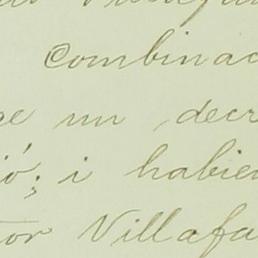 Combinac
ge un decr
ió; i habien
tor Villafa